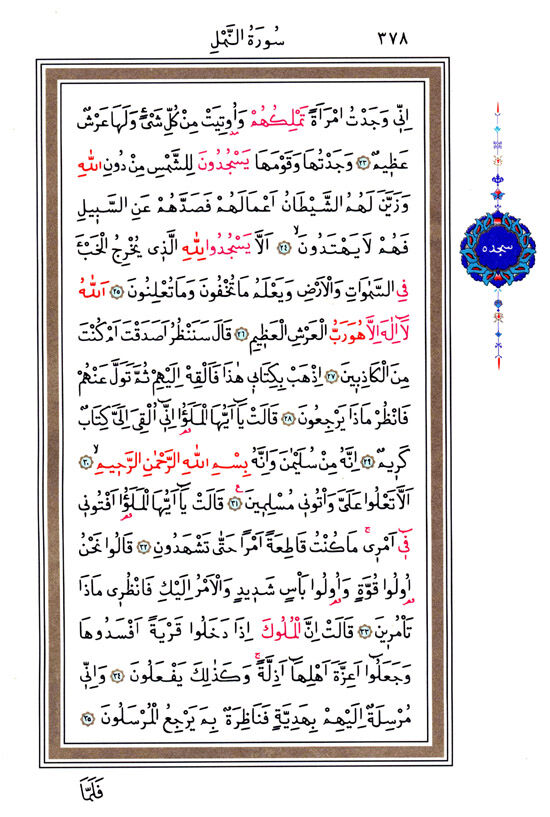 سُورَةُ النَّمْلِ ٣٧٨
اِنّ۪ي وَجَدْتُ امْرَاَةً تَمْلِكُهُمْ وَاُو۫تِيَتْ مِنْ كُلِّ شَيْءٍ وَلَهَا عَرْشٌ
عَظ۪يمٌ ﴿٢٣﴾ وَجَدْتُهَا وَقَوْمَهَا يَسْجُدُونَ لِلشَّمْسِ مِنْ دُونِ اللّٰهِ
وَزَيَّنَ لَهُمُ الشَّيْطَانُ اَعْمَالَهُمْ فَصَدَّهُمْ عَنِ السَّب۪يلِ
فَهُمْ لَا يَهْتَدُونَۙ ﴿٢٤﴾ اَلَّا يَسْجُدُوا لِلّٰهِ الَّذ۪ي يُخْرِجُ الْخَبْءَ
فِي السَّمٰوَاتِ وَالْاَرْضِ وَيَعْلَمُ مَا تُخْفُونَ وَمَا تُعْلِنُونَ ﴿٢٥﴾ اَللّٰهُ
لَٓا اِلٰهَ اِلَّا هُوَ رَبُّ الْعَرْشِ الْعَظ۪يمِ ﴿٢٦﴾ قَالَ سَنَنْظُرُ اَصَدَقْتَ اَمْ كُنْتَ
مِنَ الْكَاذِب۪ينَ ﴿٢٧﴾ اِذْهَبْ بِكِتَاب۪ي هٰذَا فَاَلْقِهْ اِلَيْهِمْ ثُمَّ تَوَلَّ عَنْهُمْ
فَانْظُرْ مَاذَا يَرْجِعُونَ ﴿٢٨﴾ قَالَتْ يَٓا اَيُّهَا الْمَلَؤُ۬ا اِنّ۪ٓي اُلْقِيَ اِلَيَّ كِتَابٌ
كَر۪يمٌ ﴿٢٩﴾ اِنَّهُ مِنْ سُلَيْمٰنَ وَاِنَّهُ بِسْمِ اللّٰهِ الرَّحْمٰنِ الرَّح۪يمِۙ ﴿٣٠﴾
اَلَّا تَعْلُوا عَلَيَّ وَأْتُون۪ي مُسْلِم۪ينَ۟ ﴿٣١﴾ قَالَتْ يَٓا اَيُّهَا الْمَلَؤُ۬ا اَفْتُون۪ي
ف۪ٓي اَمْر۪يۚ مَا كُنْتُ قَاطِعَةً اَمْرًا حَتّٰى تَشْهَدُونِ ﴿٣٢﴾ قَالُوا نَحْنُ
اُو۬لُوا قُوَّةٍ وَاُو۬لُوا بَأْسٍ شَد۪يدٍ وَالْاَمْرُ اِلَيْكِ فَانْظُر۪ي مَاذَا
تَأْمُر۪ينَ ﴿٣٣﴾ قَالَتْ اِنَّ الْمُلُوكَ اِذَا دَخَلُوا قَرْيَةً اَفْسَدُوهَا
وَجَعَلُٓوا اَعِزَّةَ اَهْلِهَٓا اَذِلَّةًۚ وَكَذٰلِكَ يَفْعَلُونَ ﴿٣٤﴾ وَاِنّ۪ي
مُرْسِلَةٌ اِلَيْهِمْ بِهَدِيَّةٍ فَنَاظِرَةٌ بِمَ يَرْجِعُ الْمُرْسَلُونَ ﴿٣٥﴾
فَلَمَّا
سجده